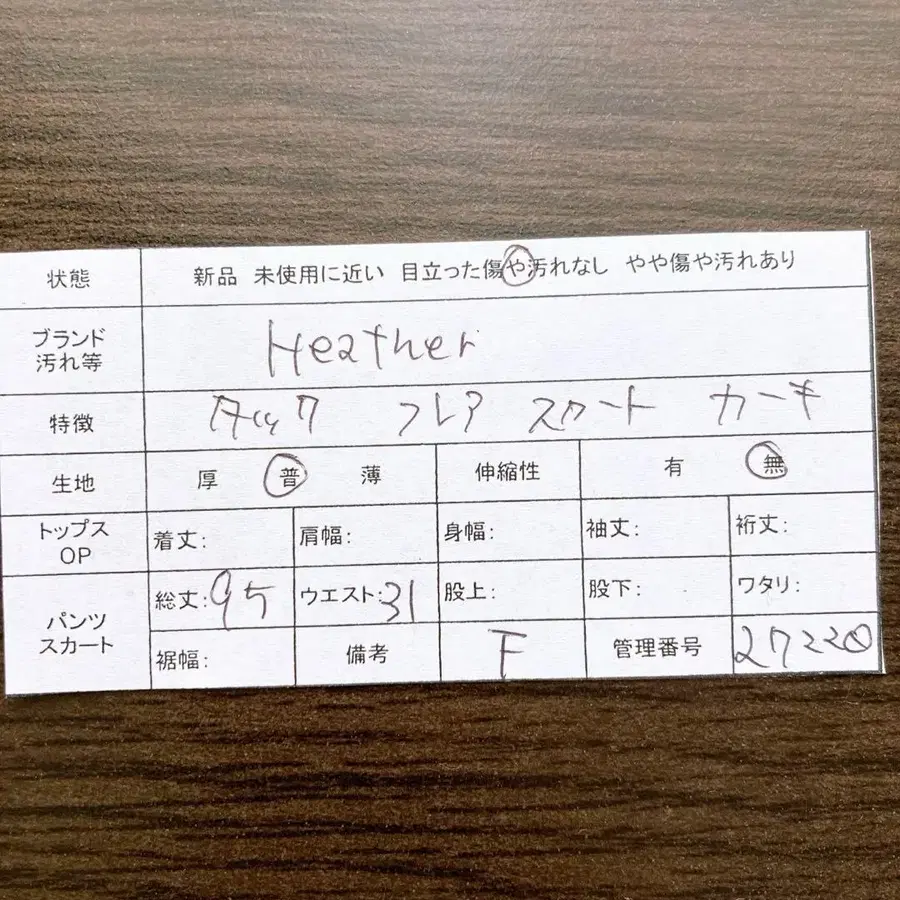 状態 新品 未使用に近い 目立った傷や汚れなし やや傷や汚れあり
ブランド
汚れ等
Heather
特徴 タック フレア スカート カーキ
生地 厚 普 薄 伸縮性 有 無
トップス
OP
着丈: 肩幅: 身幅: 袖丈: 裄丈:
パンツ
スカート
総丈:95 ウエスト:31 股上: 股下: ワタリ:
裾幅: 備考 F 管理番号 27220